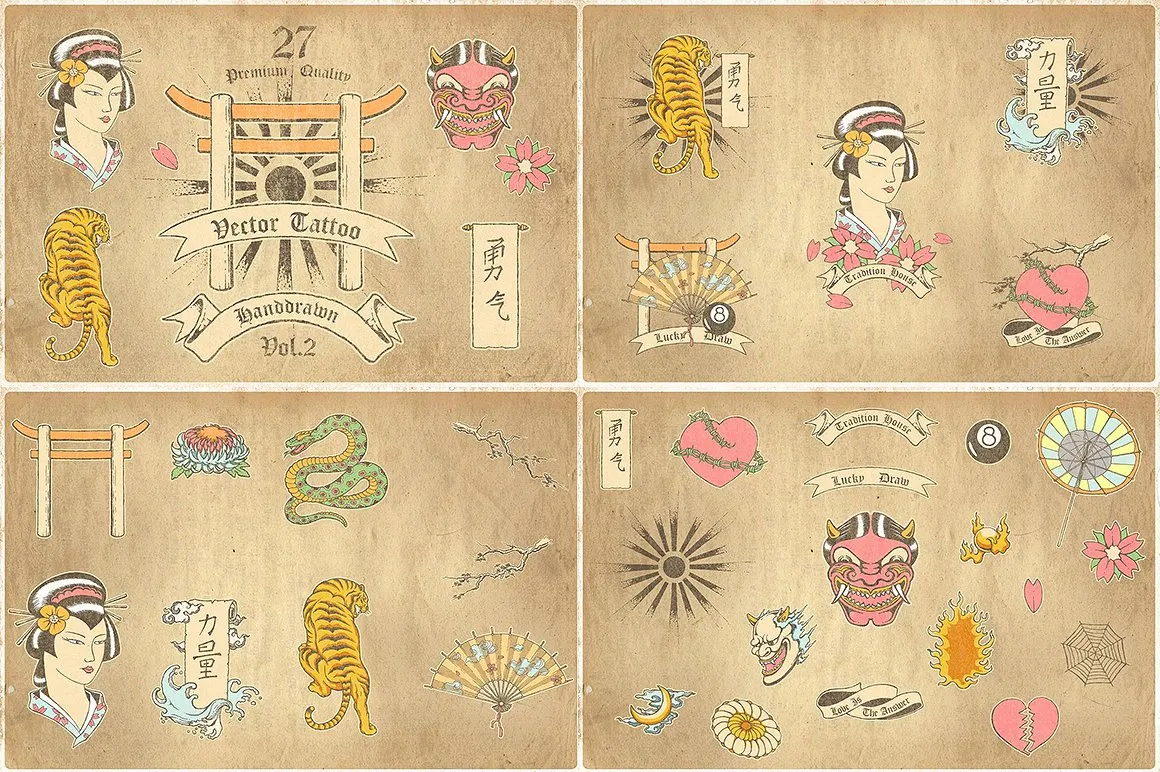 27
Premium Quality
Vector Tattoo
Handdrawn
Vol.2
勇
气
勇
气
力
量
Tradition House
8
Lucky Draw
Love Is
The Answer
力
量
勇
气
Tradition House
8
Lucky Draw
Love Is
The Answer